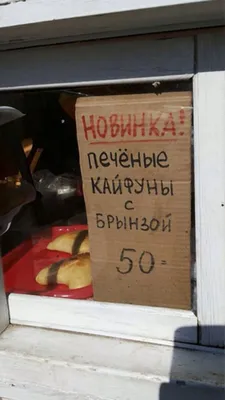 НОВИНКА!
печёные
КАЙФУНЫ
с
БРЫНЗОЙ
50=